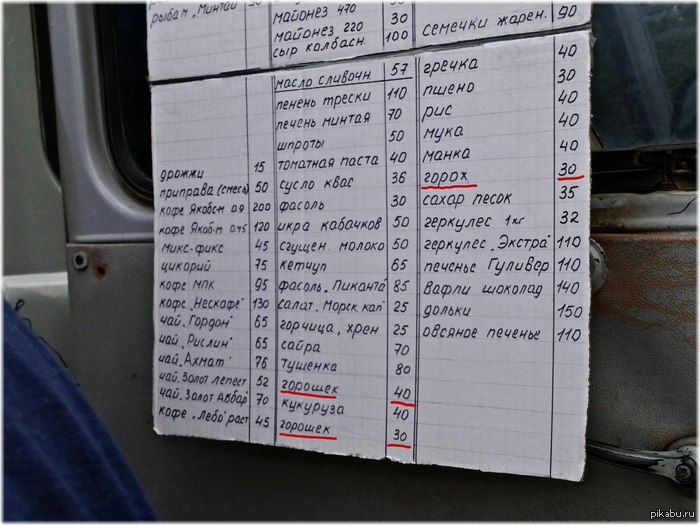 рыбам „Минтай
майонез 470 30
майонез 220 30
сыр колбасн. 100
семечки жарен. 90
дрожжи 15
приправа (смесь) 50
кофе Якобс-м 0.9 200
кофе Якоб-м 0.45 120
микс-фикс 45
цикорий 75
кофе МПК 95
кофе „Нескафе" 130
чай „Гордон" 65
чай „Рислин" 65
чай „Ахмат" 76
чай. Золот лепест 52
чай. Золот Акбар 70
кофе „Лебо" раст 45
масло сливочн 57
пенень трески 110
печень минтая 70
шпроты 50
томатная паста 40
сусло квас 36
фасоль 30
икра кабачков 50
сгущен. молоко 50
кетчуп 65
фасоль „Пиканта" 85
салат „Морск кап" 25
горчица, хрен 25
сайра 70
тушенка 80
горошек 40
кукуруза 40
горошек 30
гречка 40
пшено 30
рис 40
мука 40
манка 40
горох 30
сахар песок 35
геркулес 1кг 32
геркулес „Экстра" 110
печенье Гуливер 110
вафли шоколад 140
дольки 150
овсяное печенье 110
pikabu.ru